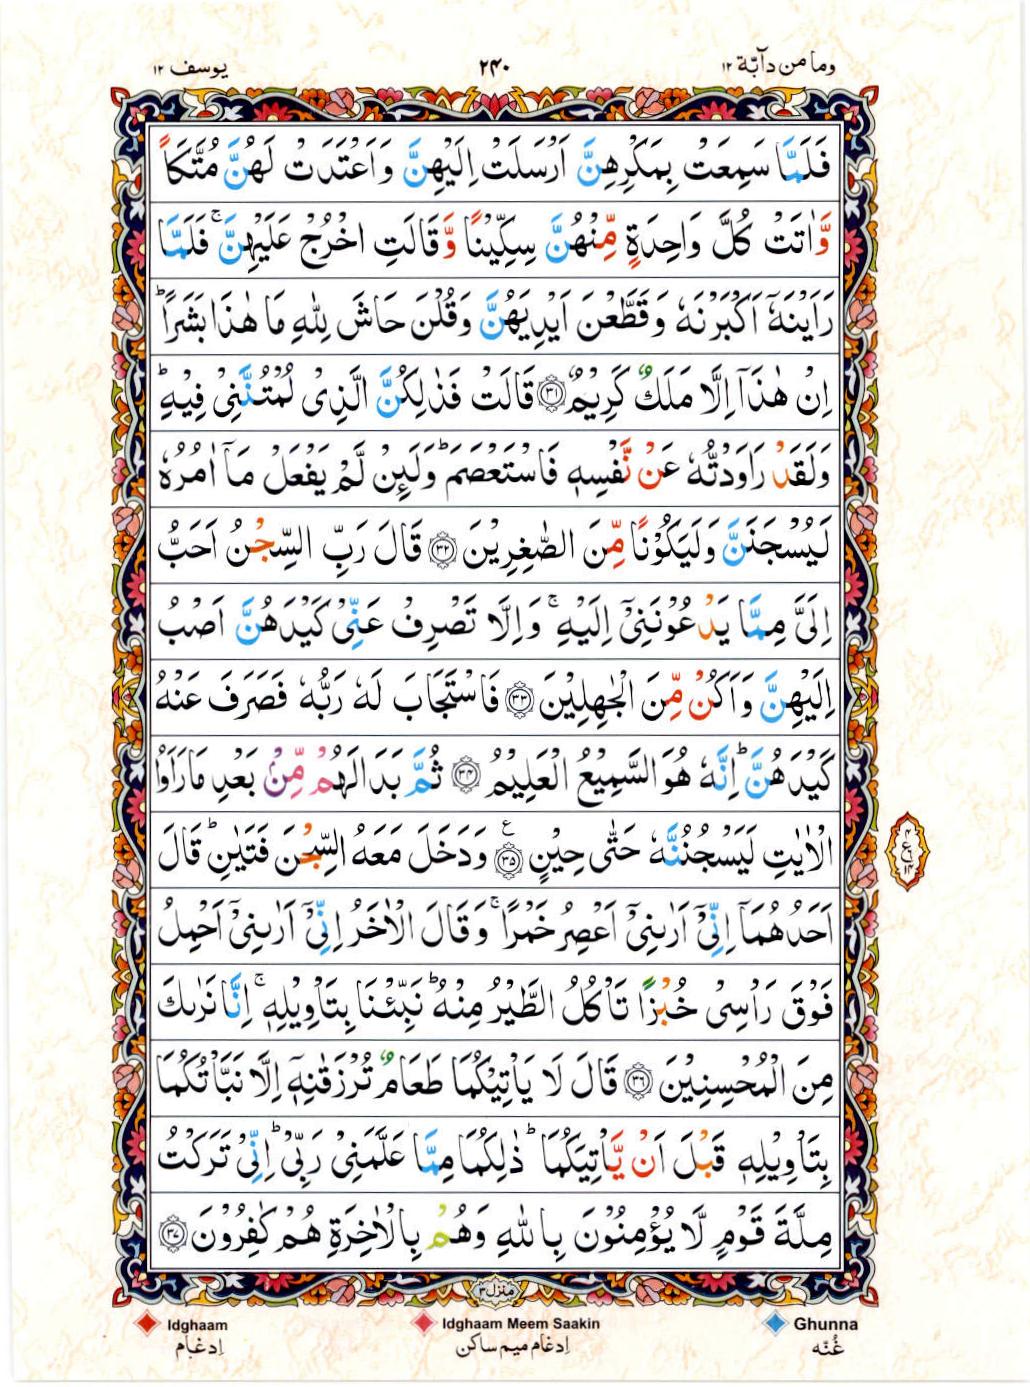 وما من دآبة ۱۲
۲۴۰
یوسف ۱۲
فَلَمَّا سَمِعَتْ بِمَكْرِهِنَّ اَرْسَلَتْ اِلَيْهِنَّ وَاَعْتَدَتْ لَهُنَّ مُتَّكَاً
وَّاٰتَتْ كُلَّ وَاحِدَةٍ مِّنْهُنَّ سِكِّيْنًا وَّقَالَتِ اخْرُجْ عَلَيْهِنَّ ۚ فَلَمَّا
رَاَيْنَهٗٓ اَكْبَرْنَهٗ وَقَطَّعْنَ اَيْدِيَهُنَّ وَقُلْنَ حَاشَ لِلّٰهِ مَا هٰذَا بَشَرًا ؕ
اِنْ هٰذَآ اِلَّا مَلَكٌ كَرِيْمٌ ﴿۳۱﴾ قَالَتْ فَذٰلِكُنَّ الَّذِىْ لُمْتُنَّنِىْ فِيْهِ ؕ
وَلَقَدْ رَاوَدْتُّهٗ عَنْ نَّفْسِهٖ فَاسْتَعْصَمَ ؕ وَلَئِنْ لَّمْ يَفْعَلْ مَآ اٰمُرُهٗ
لَيُسْجَنَنَّ وَلَيَكُوْنًا مِّنَ الصّٰغِرِيْنَ ﴿۳۲﴾ قَالَ رَبِّ السِّجْنُ اَحَبُّ
اِلَىَّ مِمَّا يَدْعُوْنَنِىْٓ اِلَيْهِ ۚ وَاِلَّا تَصْرِفْ عَنِّىْ كَيْدَهُنَّ اَصْبُ
اِلَيْهِنَّ وَاَكُنْ مِّنَ الْجٰهِلِيْنَ ﴿۳۳﴾ فَاسْتَجَابَ لَهٗ رَبُّهٗ فَصَرَفَ عَنْهُ
كَيْدَهُنَّ ؕ اِنَّهٗ هُوَ السَّمِيْعُ الْعَلِيْمُ ﴿۳۴﴾ ثُمَّ بَدَا لَهُمْ مِّنْۢ بَعْدِ مَا رَاَوُا
الْاٰيٰتِ لَيَسْجُنُنَّهٗ حَتّٰى حِيْنٍ ﴿۳۵﴾ ع وَدَخَلَ مَعَهُ السِّجْنَ فَتَيٰنِ ؕ قَالَ
اَحَدُهُمَآ اِنِّىْٓ اَرٰىنِىْٓ اَعْصِرُ خَمْرًا ۚ وَقَالَ الْاٰخَرُ اِنِّىْٓ اَرٰىنِىْٓ اَحْمِلُ
فَوْقَ رَاْسِىْ خُبْزًا تَاْكُلُ الطَّيْرُ مِنْهُ ؕ نَبِّئْنَا بِتَاْوِيْلِهٖ ۚ اِنَّا نَرٰىكَ
مِنَ الْمُحْسِنِيْنَ ﴿۳۶﴾ قَالَ لَا يَاْتِيْكُمَا طَعَامٌ تُرْزَقٰنِهٖٓ اِلَّا نَبَّاْتُكُمَا
بِتَاْوِيْلِهٖ قَبْلَ اَنْ يَّاْتِيَكُمَا ؕ ذٰلِكُمَا مِمَّا عَلَّمَنِىْ رَبِّىْ ؕ اِنِّىْ تَرَكْتُ
مِلَّةَ قَوْمٍ لَّا يُؤْمِنُوْنَ بِاللّٰهِ وَهُمْ بِالْاٰخِرَةِ هُمْ كٰفِرُوْنَ ﴿۳۷﴾
منزل ۳
Idghaam
Idghaam Meem Saakin
Ghunna
اِدغام
اِدغام میم ساکن
غُنّہ